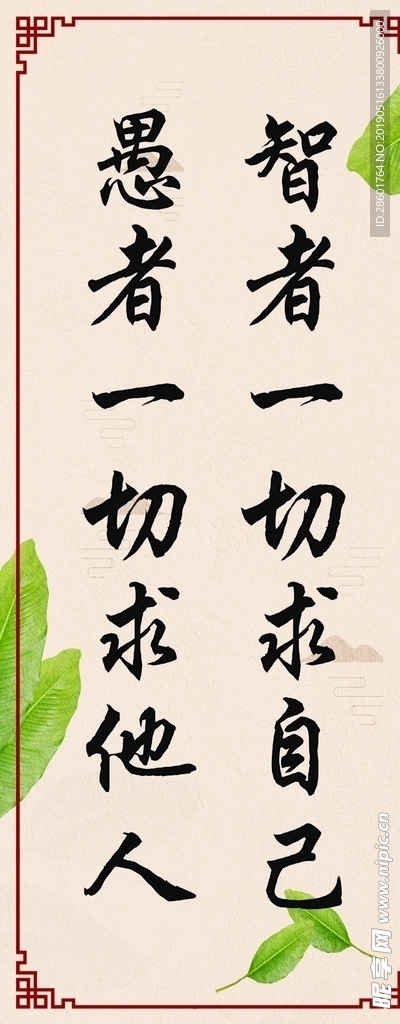 智者一切求自己
愚者一切求他人
ID:28601764 NO:20190516133800926000
昵享网 www.nipic.cn